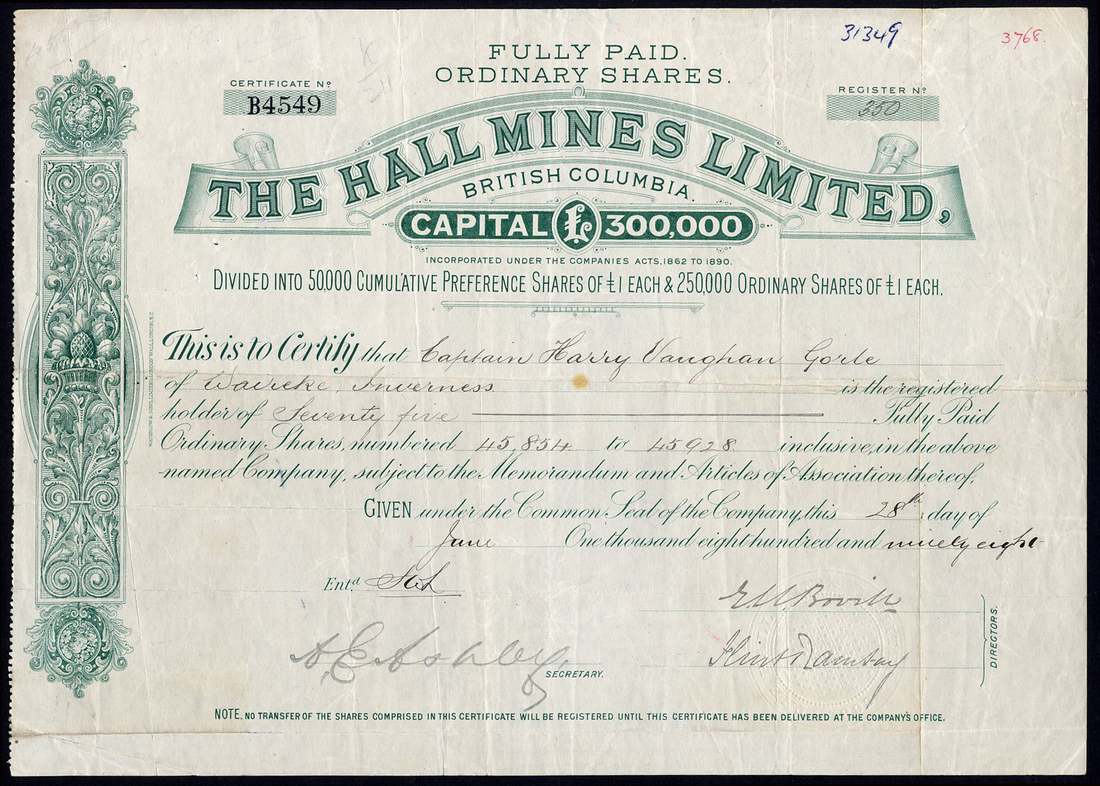 31349
3768.
FULLY PAID.
ORDINARY SHARES.
CERTIFICATE Nº
B4549
REGISTER Nº
350
THE HALL MINES LIMITED,
BRITISH COLUMBIA.
CAPITAL £ 300,000
INCORPORATED UNDER THE COMPANIES ACTS, 1862 TO 1890.
DIVIDED INTO 50,000 CUMULATIVE PREFERENCE SHARES OF £1 EACH & 250,000 ORDINARY SHARES OF £1 EACH.
This is to Certify that Captain Harry Vaughan Gorle
of Inverness is the registered
holder of Seventy five Fully Paid
Ordinary Shares, numbered 45,854 to 45928 inclusive, in the above
named Company, subject to the Memorandum and Articles of Association thereof.
GIVEN under the Common Seal of the Company, this 28th day of
June One thousand eight hundred and ninety eight
Entd
A E Ashley
SECRETARY.
DIRECTORS.
NOTE. NO TRANSFER OF THE SHARES COMPRISED IN THIS CERTIFICATE WILL BE REGISTERED UNTIL THIS CERTIFICATE HAS BEEN DELIVERED AT THE COMPANY'S OFFICE.